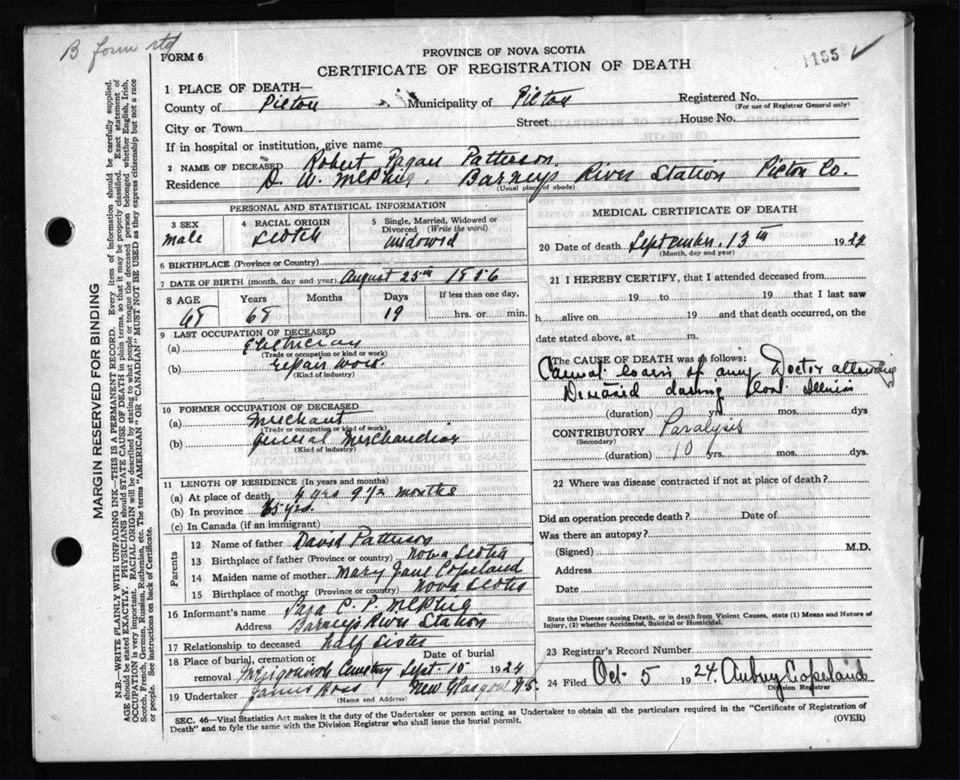 B form rtd
FORM 6
1155 ✓
PROVINCE OF NOVA SCOTIA
CERTIFICATE OF REGISTRATION OF DEATH
1 PLACE OF DEATH—
County of Pictou Municipality of Pictou Registered No.
(For use of Registrar General only)
City or Town Street House No.
If in hospital or institution, give name
2 NAME OF DECEASED Robert Pagan Patterson
Residence D. W. McPhie, Barneys River Station Pictou Co.
(Usual place of abode)
PERSONAL AND STATISTICAL INFORMATION
3 SEX
male
4 RACIAL ORIGIN
Scotch
5 Single, Married, Widowed or Divorced (Write the word)
widowed
6 BIRTHPLACE (Province or Country)
7 DATE OF BIRTH (month, day and year) August 25th 1856
8 AGE Years Months Days If less than one day,
68 68 19 hrs. or min.
9 LAST OCCUPATION OF DECEASED
(a) Electrician
(Trade or occupation or kind or work)
(b) repair work
(Kind of industry)
10 FORMER OCCUPATION OF DECEASED
(a) Merchant
(Trade or occupation or kind of work)
(b) general merchandise
(Kind of industry)
11 LENGTH OF RESIDENCE (In years and months)
(a) At place of death 6 yrs 9 1/2 months
(b) In province 65 yrs.
(c) In Canada (if an immigrant)
Parents
12 Name of father David Patterson
13 Birthplace of father (Province or country) Nova Scotia
14 Maiden name of mother Mary Jane Copeland
15 Birthplace of mother (Province or country) Nova Scotia
16 Informant's name Sara C. P. McPhie
Address Barneys River Station
17 Relationship to deceased half Sister
18 Place of burial, cremation or Date of burial
removal Cemetery Sept. 15 1924
19 Undertaker James Ross New Glasgow N.S.
(Name and Address)
MEDICAL CERTIFICATE OF DEATH
20 Date of death September 13th 1924
(Month, day and year)
21 I HEREBY CERTIFY, that I attended deceased from
19 to 19 that I last saw
h alive on 19 and that death occurred, on the
date stated above, at m.
The CAUSE OF DEATH was as follows:
Cannot learn of any Doctor attending
Deceased during last illness
(duration) yrs. mos. dys
CONTRIBUTORY Paralysis
(Secondary)
(duration) 10 yrs. mos. dys.
22 Where was disease contracted if not at place of death?
Did an operation precede death? Date of
Was there an autopsy?
(Signed) M.D.
Address
Date
State the Disease causing Death, or in death from Violent Causes, state (1) Means and Nature of
Injury, (2) whether Accidental, Suicidal or Homicidal.
23 Registrar's Record Number
24 Filed Oct 5 1924. Aubrey Copeland
Division Registrar
SEC. 46—Vital Statistics Act makes it the duty of the Undertaker or person acting as Undertaker to obtain all the particulars required in the "Certificate of Registration of
Death" and to fyle the same with the Division Registrar who shall issue the burial permit.
(OVER)
MARGIN RESERVED FOR BINDING
N.B.—WRITE PLAINLY WITH UNFADING INK—THIS IS A PERMANENT RECORD. Every item of information should be carefully supplied.
AGE should be stated EXACTLY. PHYSICIANS should STATE CAUSE OF DEATH in plain terms, so that it may be properly classified. Exact statement of
OCCUPATION is very important. RACIAL ORIGIN will be described by stating to what people or tongue the deceased person belonged whether English, Irish,
Scotch, French, German, Russian, Ruthenian, etc. The terms "AMERICAN" OR "CANADIAN" MUST NOT BE USED as they express citizenship but not a race
or people. See instructions on back of Certificate.